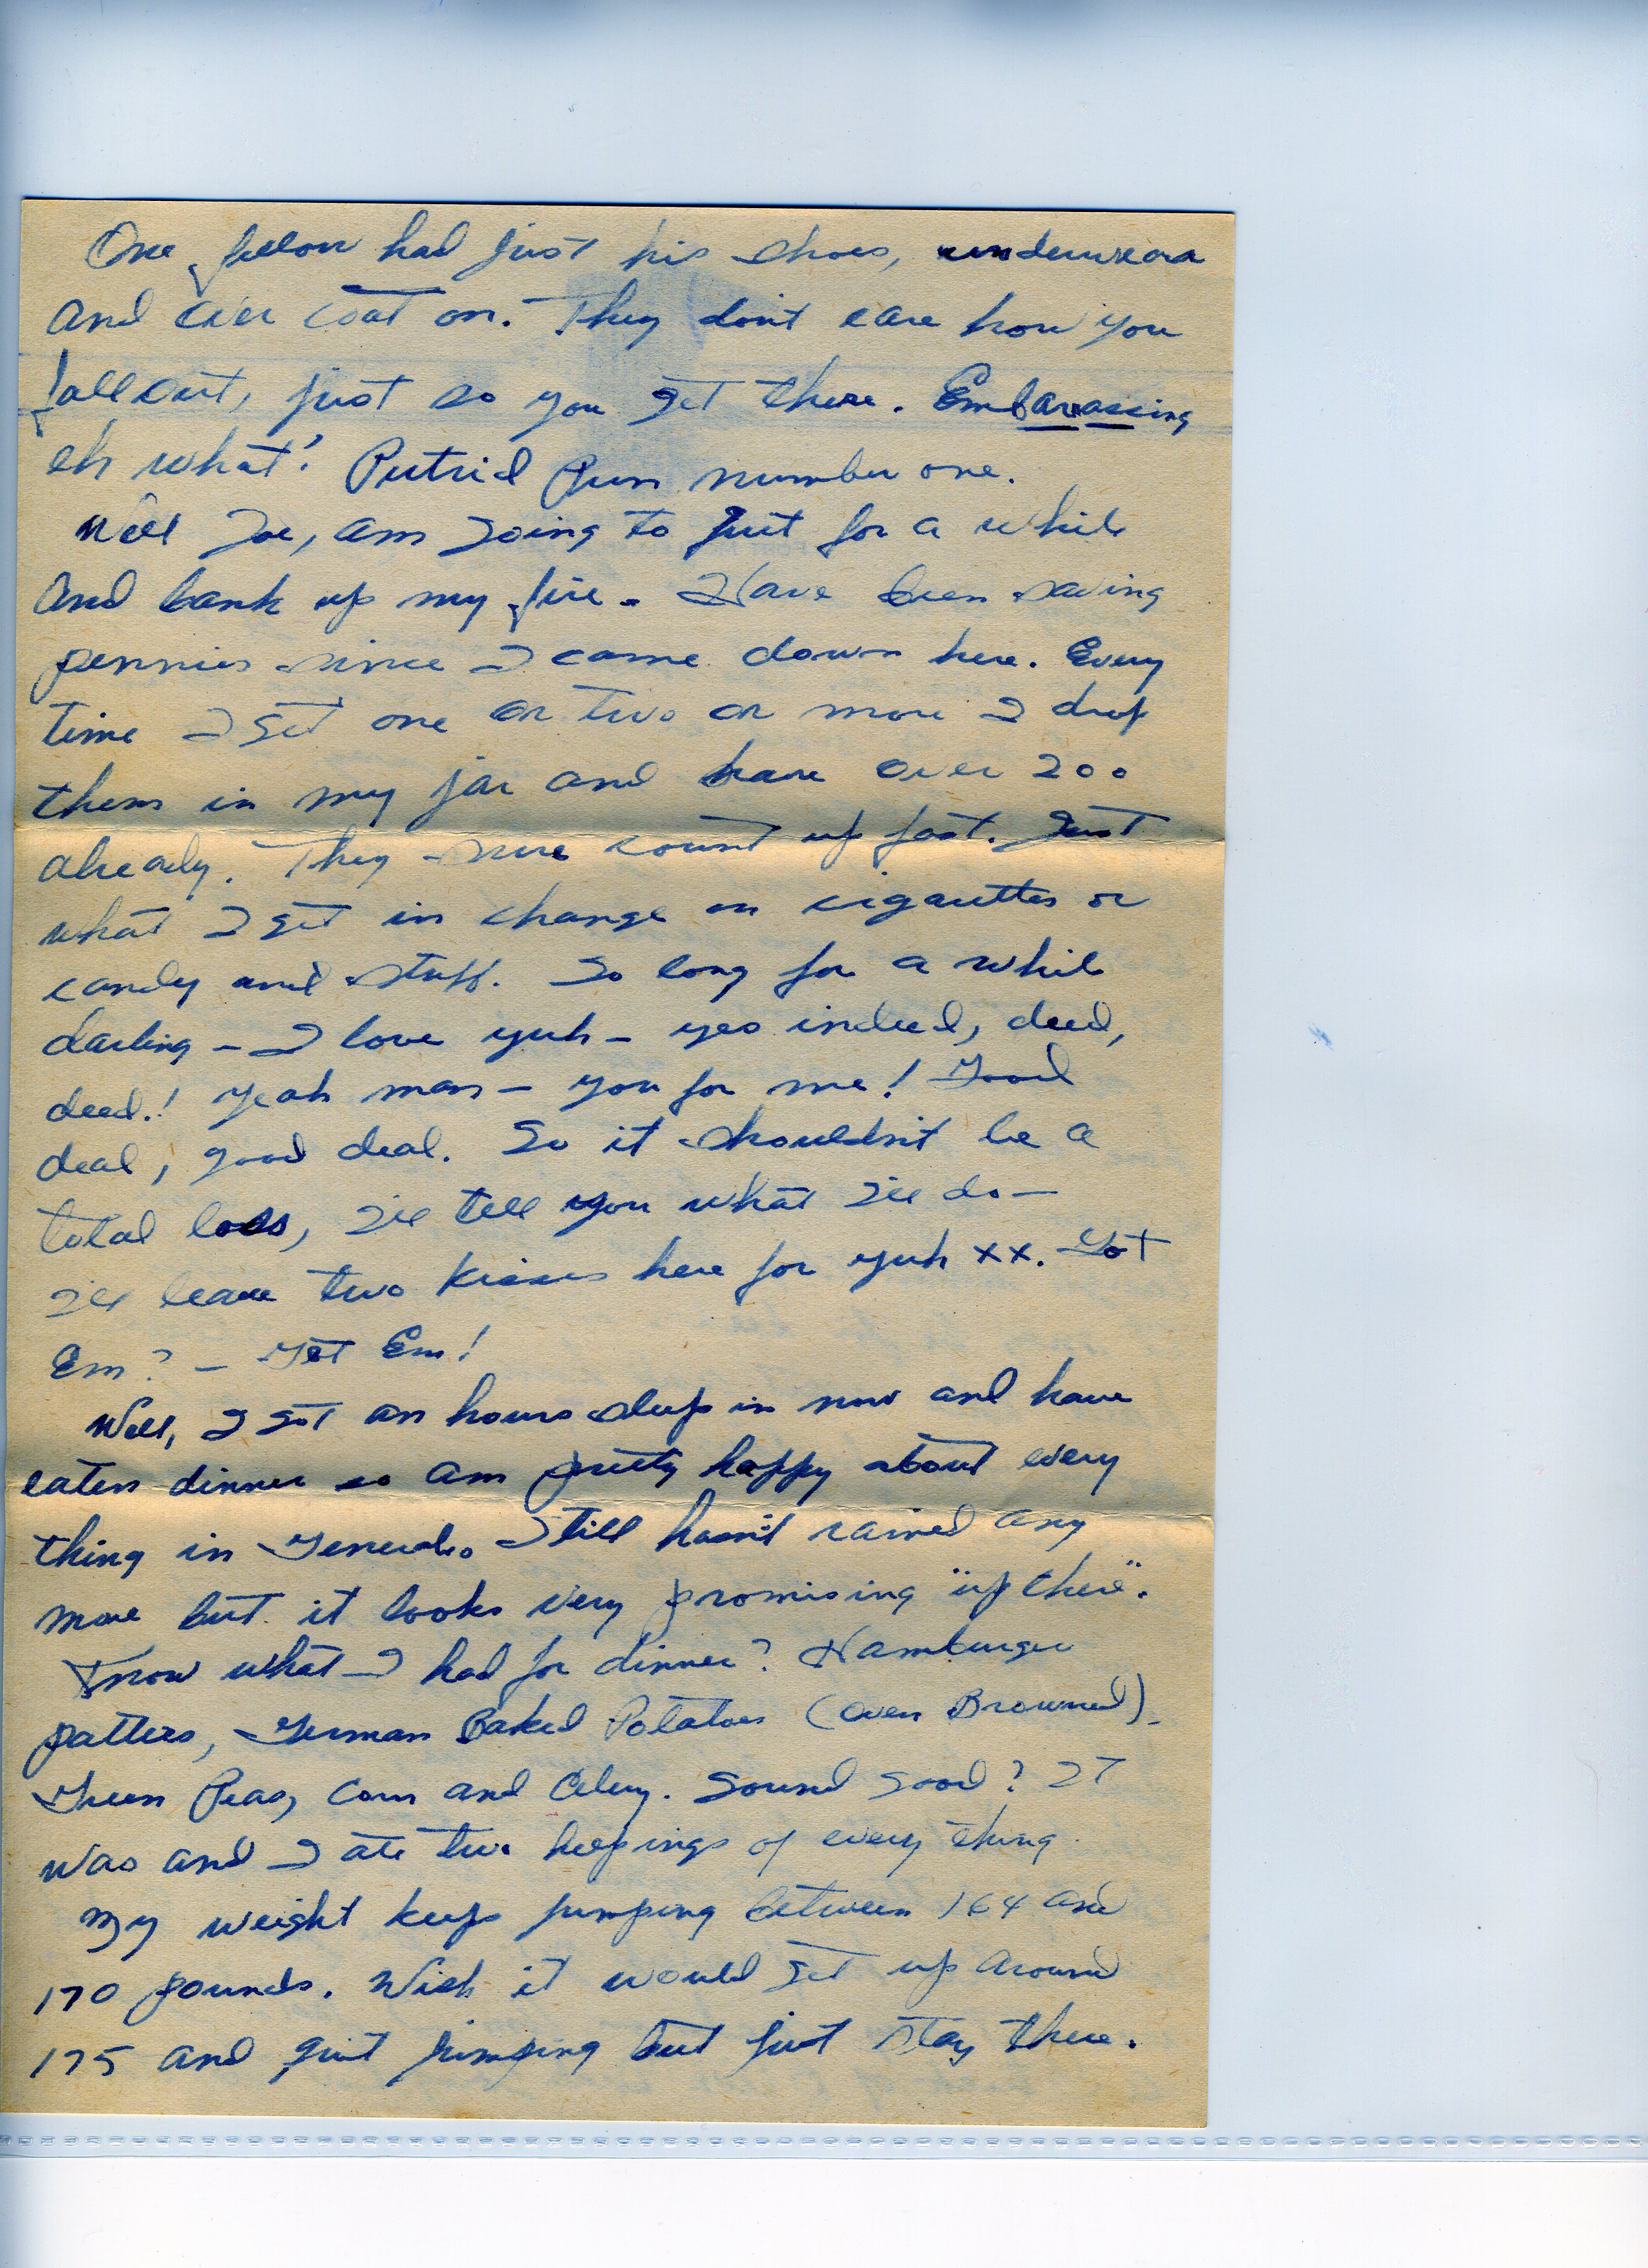 One fellow had just his shoes, underwear
and over coat on. They don't care how you
fall out, just so you get there. Embarassing
eh what? Putrid Pun number one.
Well Joe, am going to quit for a while
and bank up my fire. Have been saving
pennies since I came down here. Every
time I get one or two or more I drop
them in my jar and have over 200
already. They sure count up fast. Just
what I get in change on cigarettes or
candy and stuff. So long for a while
darling - I love yuh - yes indeed, deed,
deed.! Yeah man - you for me! Good
deal, good deal. So it shouldn't be a
total loss, I'll tell you what I'll do -
I'll leave two kisses here for yuh xx. Got
Em? - Got Em!
Well, I got an hours sleep in now and have
eaten dinner so am pretty happy about every
thing in General. Still hasn't rained any
more but it looks very promising "up there".
Know what I had for dinner? Hamburger
patties, German Baked Potatoes (oven Browned).
Green Peas, Corn and Celery. Sound good? It
was and I ate two helpings of every thing
My weight keeps jumping between 164 and
170 pounds. Wish it would get up around
175 and quit jumping but just stay there.